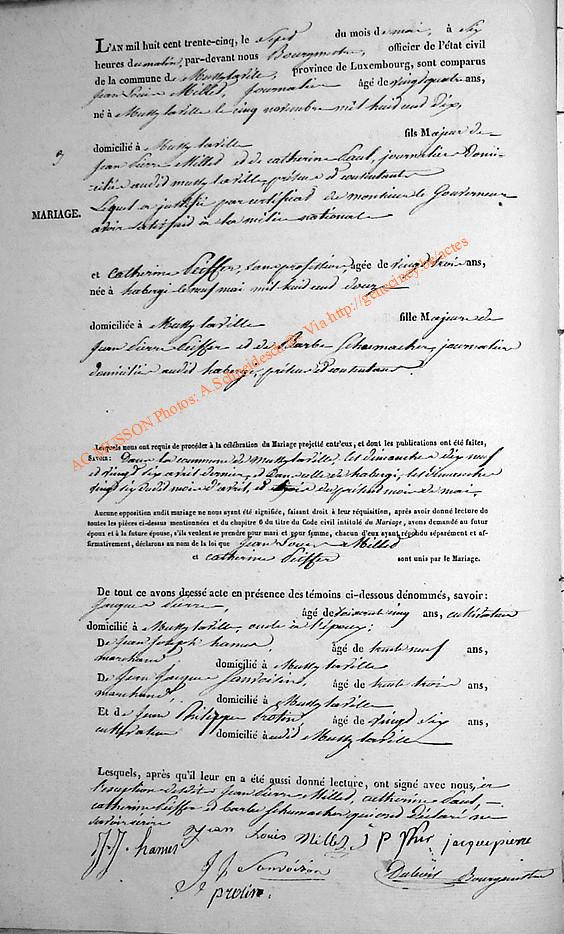 L'AN mil huit cent trente-cinq, le Sept du mois de mai, à Six
heures du matin, par-devant nous Bourgmestre, officier de l'état civil
de la commune de Mussy laville, province de Luxembourg, sont comparus
Jean Louis Millet, Journalier âgé de vingt quatre ans,
né à Mussy laville le cinq novembre mil huit cent dix,
domicilié à Mussy laville fils Majeur de
Jean Pierre Millet et de catherine Saul, journalier Domi-
cilié audit mussy laville, présens et contentants
MARIAGE.
Lequel a justifié par certificat de monsieur le Gouverneur
avoir satisfait à la milice national
et Catherine Peiffer, Sans profession, agée de vingt trois ans,
née à habergi le neuf mai mil huit cent douze
domiciliée à Mussy laville fille Majeure de
Jean Pierre Peiffer et de Barbe Schumacher, journalier
domicilié audit habergi, présens et contentants.
AG MUSSON Photos: A.Schneidesch © Via http://geneciney.be/actes
Lesquels nous ont requis de procéder à la célébration du Mariage projetté entr'eux, et dont les publications ont été faites,
SAVOIR: Dans la commune de Mussy laville, les dimanche dix neuf
et vingt six avril dernier, et dans celle de habergi, les dimanche
vingt six dudit mois d'avril, et trois du présent mois de mai.
Aucune opposition audit mariage ne nous ayant été signifiée, faisant droit à leur réquisition, après avoir donné lecture de
toutes les pièces ci-dessus mentionnées et du chapitre 6 du titre du Code civil intitolé du Mariage, avons demandé au futur
époux et à la future épouse, s'ils veulent se prendre pour mari et pour femme, chacun d'eux ayant répondu séparément et af-
firmativement, déclarons au nom de la loi que Jean Louis Millet
et catherine Peiffer sont unis par le Mariage.
De tout ce avons dressé acte en présence des témoins ci-dessous dénommés, savoir:
Jacques Pierre, âgé de Soixante cinq ans, cultivateur
domicilié à Mussy laville, oncle à l'époux;
De Jean Joseph hanus, âgé de trente neuf ans,
marchand, domicilié à Mussy laville
De Jean Jacques Sanvoisin, âgé de trente trois ans,
marchand, domicilié à Mussy laville
Et de Jean Philippe Protin âgé de vingt six ans,
cultivateur domicilié à audit Mussy laville
Lesquels, après qu'il leur en a été aussi donné lecture, ont signé avec nous, à
l'exception desdits Jean Pierre Millet, catherine Saul,
catherine Peiffer et barbe Schumacher qui ont déclaré ne
savoir écrire
Jean Louis Millet J P jacque pierre
J. J. hanus
J J Sanvoisin
protin. Bourgmestre